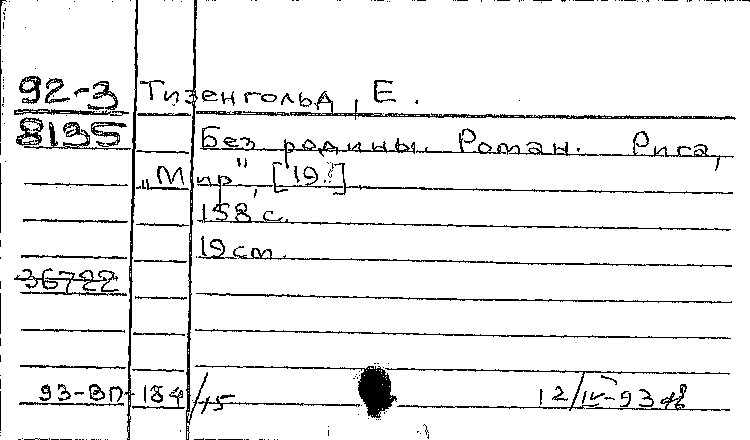 92-3 Тизенгольд, Е.
8135 Без родины. Роман. Рига,
„Мир“, [19.?]
158 с.
19 cm.
36722
93-ВП-184/15 12/IV-93